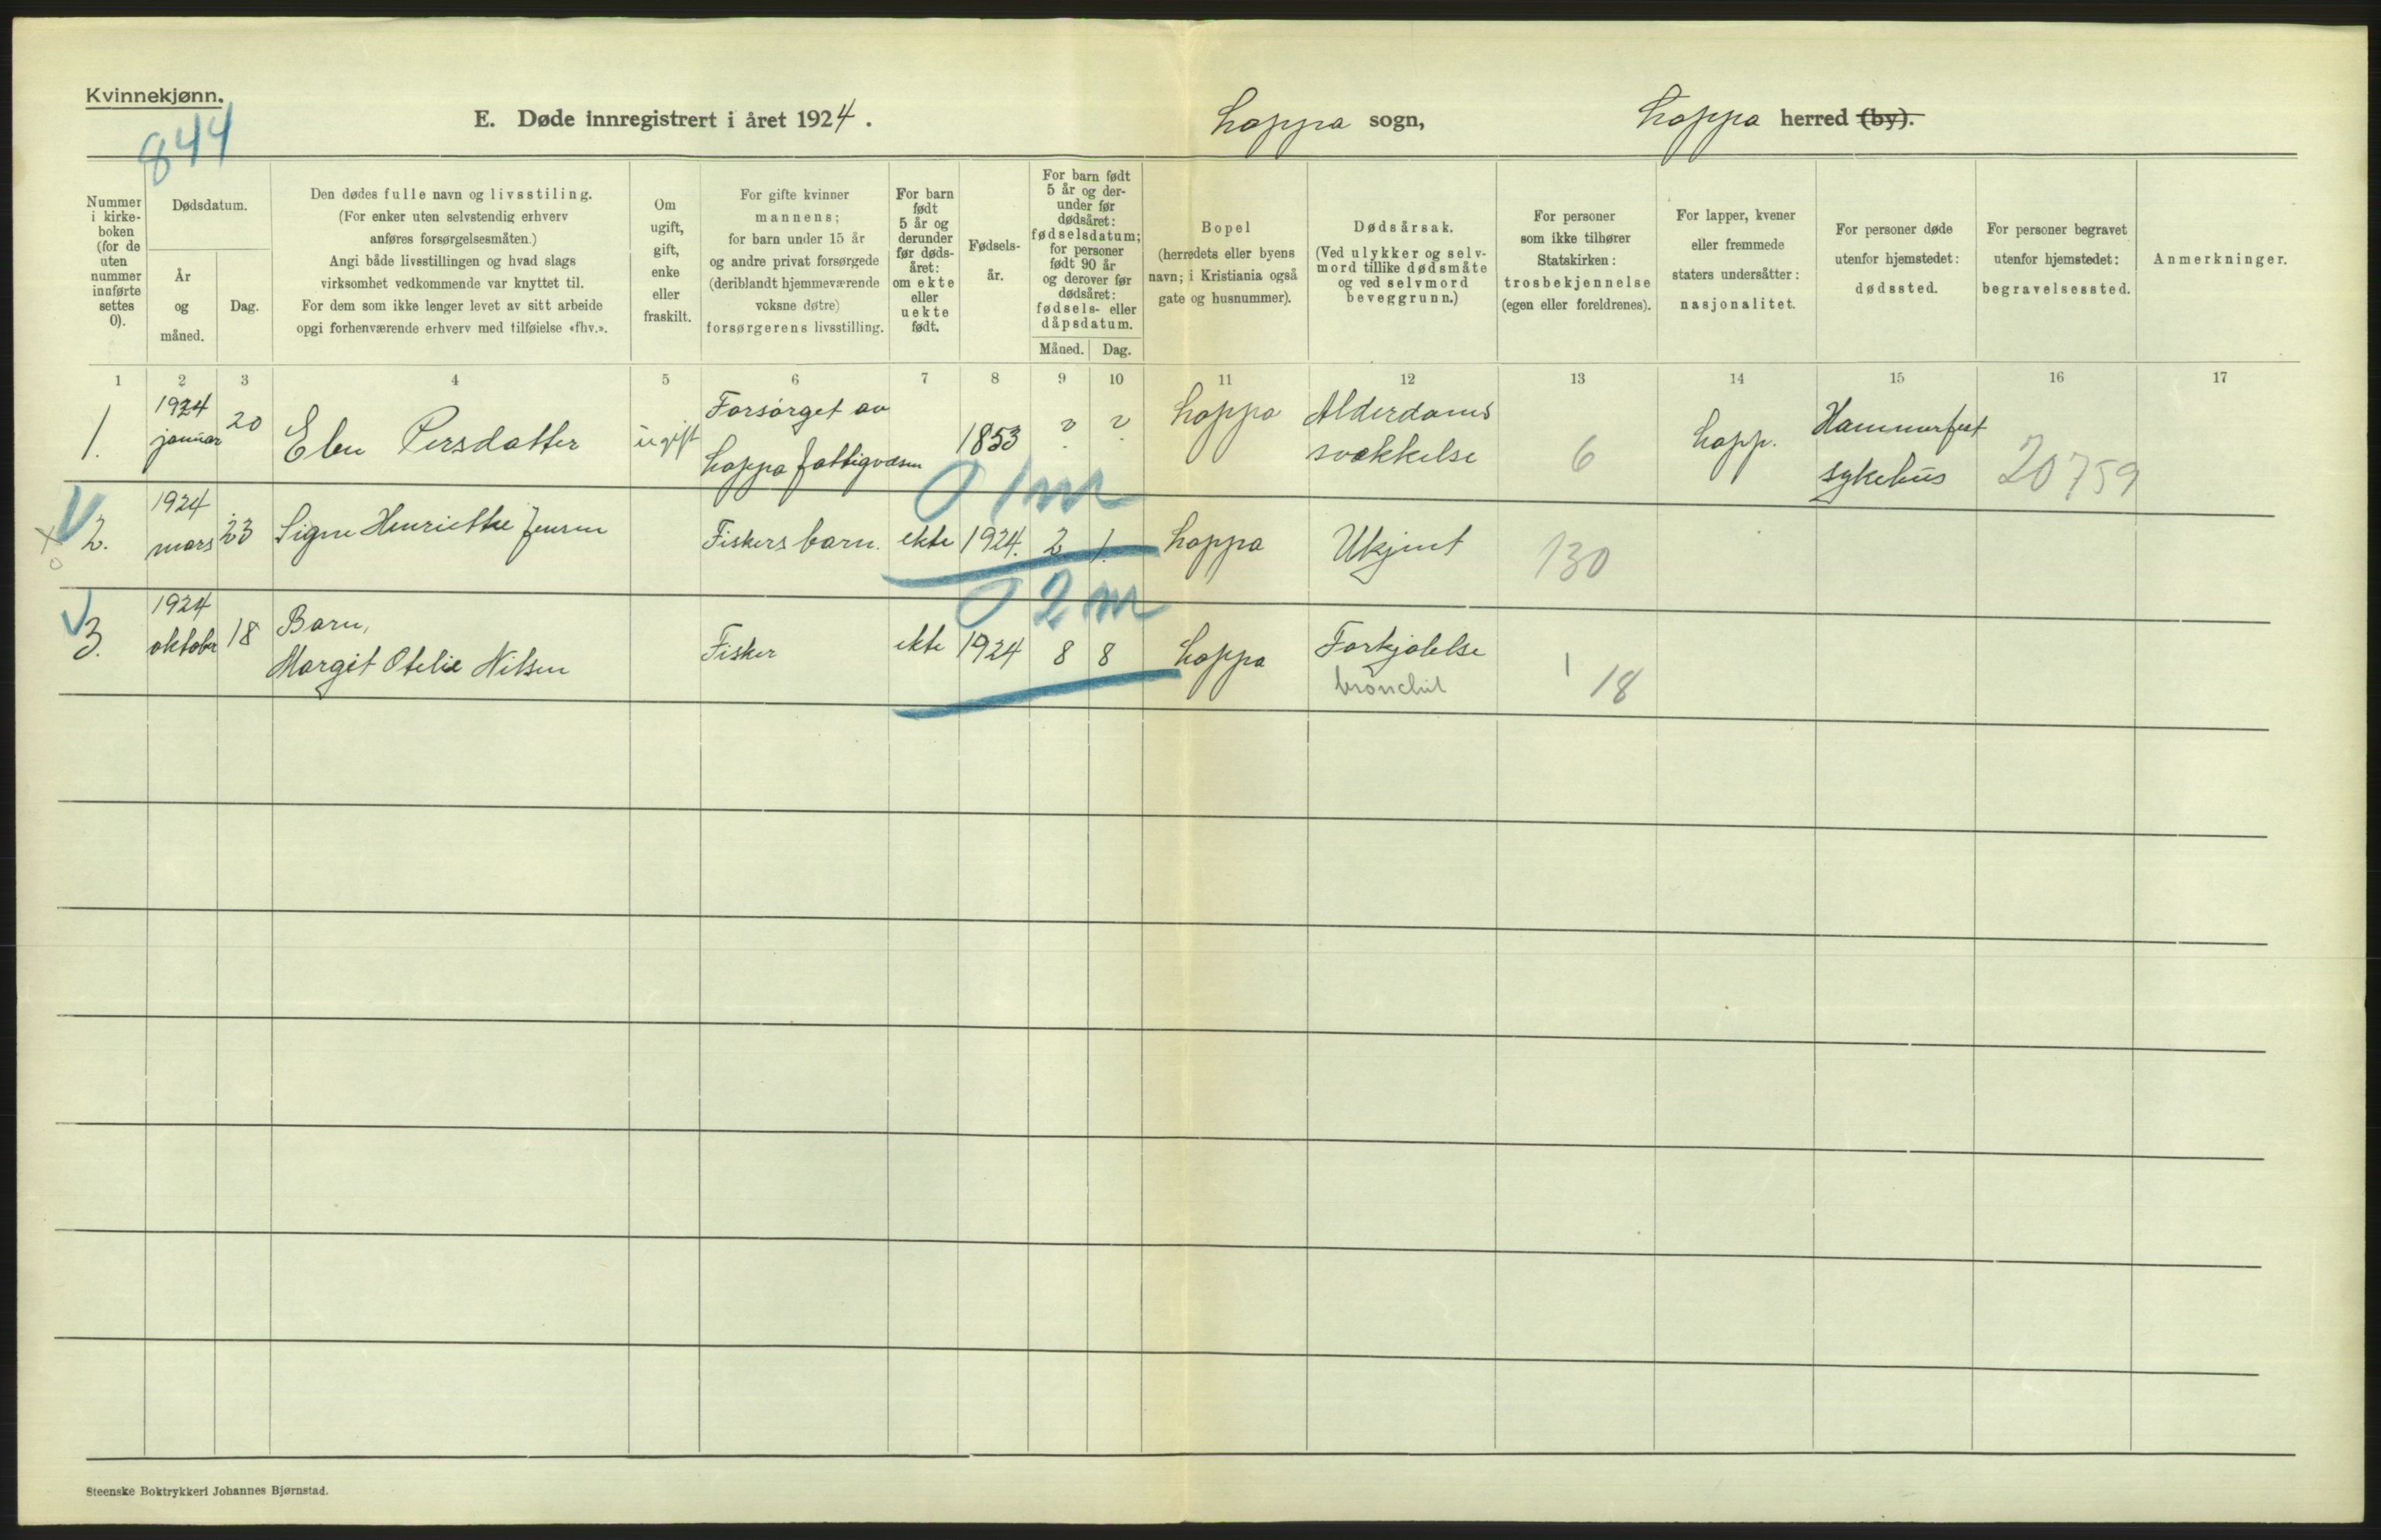 Kvinnekjønn.
844
E. Døde innregistrert i året 1924.
Loppa sogn,
Loppa herred (by).
Nummer
i kirke-
boken
(for de
uten
nummer
innførte
settes
0).
Dødsdatum.
År
og
måned.
Dag.
Den dødes fulle navn og livsstiling.
(For enker uten selvstendig erhverv
anføres forsørgelsesmåten.)
Angi både livsstillingen og hvad slags
virksomhet vedkommende var knyttet til.
For dem som ikke lenger levet av sitt arbeide
opgi forhenværende erhverv med tilføielse «fhv.».
Om
ugift,
gift,
enke
eller
fraskilt.
For gifte kvinner
mannens;
for barn under 15 år
og andre privat forsørgede
(deriblandt hjemmeværende
voksne døtre)
forsørgerens livsstilling.
For barn
født
5 år og
derunder
før døds-
året:
om ekte
eller
uekte
født.
Fødsels-
år.
For barn født
5 år og der-
under før
dødsåret:
fødselsdatum;
for personer
født 90 år
og derover før
dødsåret:
fødsels- eller
dåpsdatum.
Måned. Dag.
Bopel
(herredets eller byens
navn; i Kristiania også
gate og husnummer).
Dødsårsak.
(Ved ulykker og selv-
mord tillike dødsmåte
og ved selvmord
beveggrunn.)
For personer
som ikke tilhører
Statskirken:
trosbekjennelse
(egen eller foreldrenes).
For lapper, kvener
eller fremmede
staters undersåtter:
nasjonalitet.
For personer døde
utenfor hjemstedet:
dødssted.
For personer begravet
utenfor hjemstedet:
begravelsessted.
Anmerkninger.
1 2 3 4 5 6 7 8 9 10 11 12 13 14 15 16 17
1. 1924 januar 20 Elen Persdatter ugift Forsørget av Loppa fattigvæsen 1853 ? ? Loppa Alderdoms svækkelse 6 Lapp. Hammerfest sykehus 20759
0 1m
2. 1924 mars 23 Signe Henriette Jensen Fiskers barn. ekte 1924. 2 1. Loppa Ukjent 130
0 2m
3. 1924 oktober 18 Barn, Margit Otelie Nilsen Fisker ekte 1924 8 8 Loppa Forkjølelse bronchit 1 18
Steenske Boktrykkeri Johannes Bjørnstad.